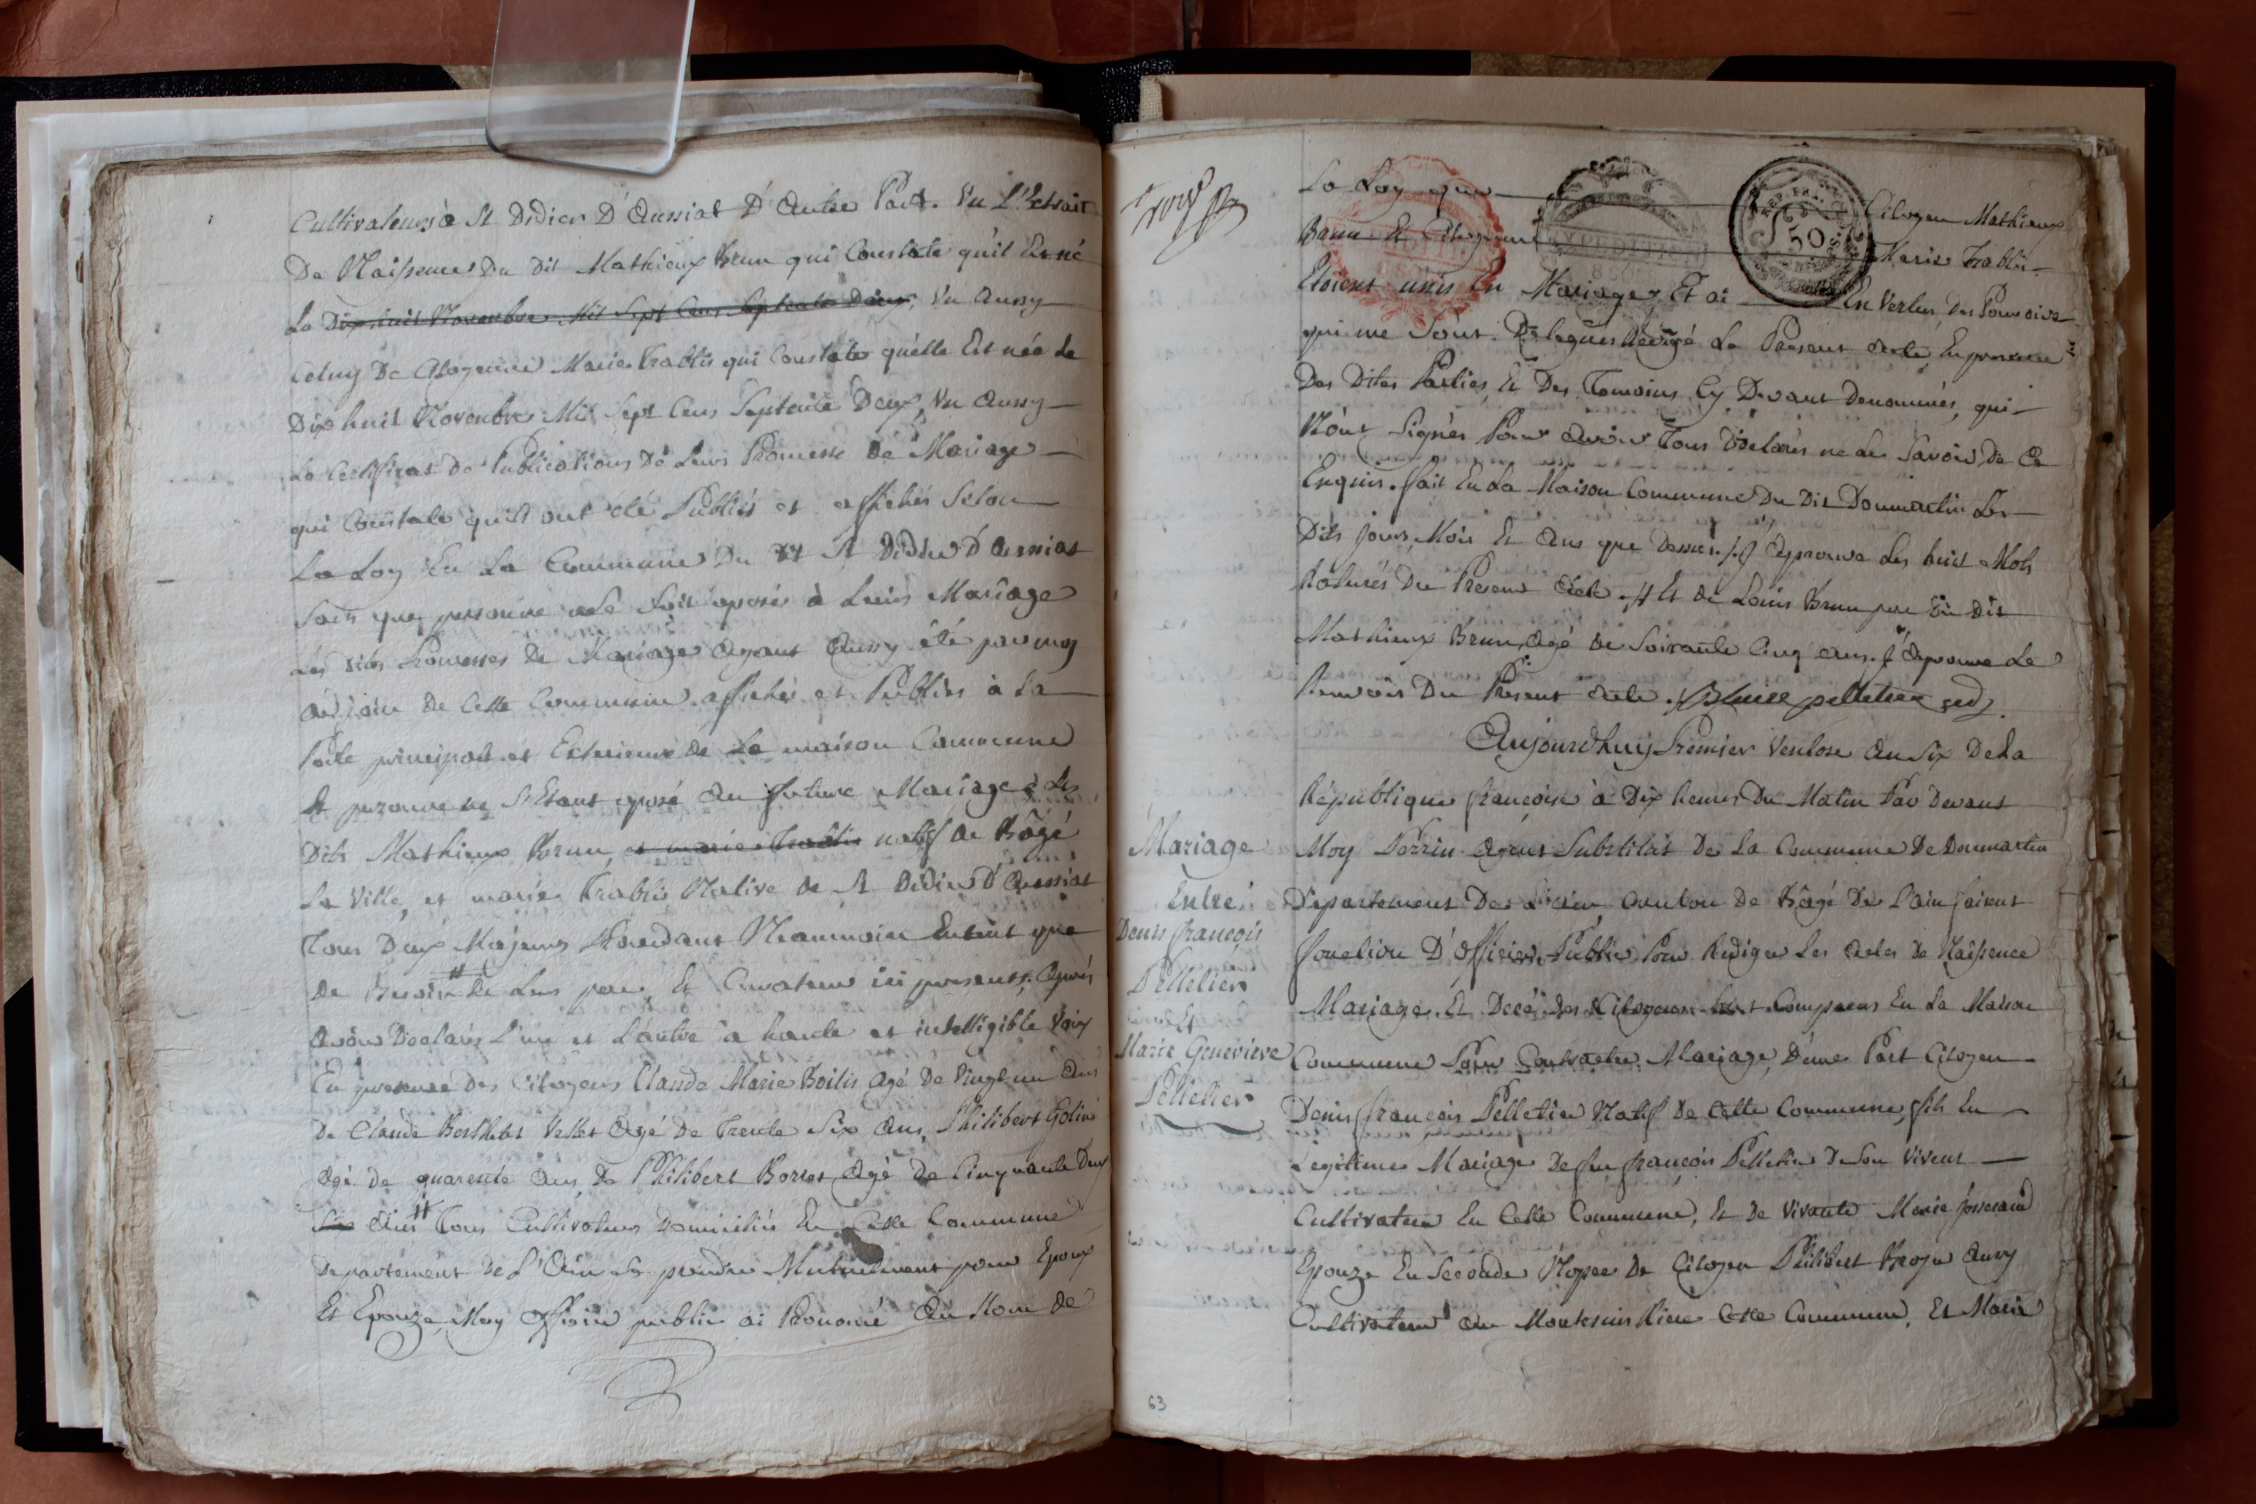 Cultivateurs à St Didier D'Aussiat D'Autre Part. Vu L'Extrait
De Naissence Du Dit Mathieux Brun qui Constate qu'il Est né
Le Dix huit Novembre Mil Sept Cens Septente Deux, Vu Aussy
Celuy De Citoyenne Marie Trablis qui Constate qu'elle Est née Le
Dix huit Novembre Mil Sept Cens Septente Deux, Vu Aussy
Le Certificat De Publications De Leurs Promesse De Mariage
qui Constate qu'ils ont été Publiés et affichés Selon
La Loy En La Commune Du dt St Didier D'Aussiat
Sans que personne ne Se Soit oposés à Leurs Mariage
Les dites Promesses De Mariage Ayant Aussy été par moy
adjoin De Cette Commune affichés et Publiés à La
Porte principale et Exterieure De La maison Commune
Et personne ne S'Etant oposé Au future Mariage Des
Dits Mathieux Brun, et marie Trablis natif De Bâgé
La Ville, et marie Trablis Native De St Didier D'Aussiat
Tous Deux Majeurs Neanmoins Entent que
De Besoin # De Leurs pere Et Curateur ici presents, Après
Avoir Declarés L'un et L'autre à haute et intelligible Voix
En presence Des Citoyens Claude Marie Boilis Agé De Vingt un Ans
De Claude Berthelet Agé De Trente Six Ans, Philibert
Agé De quarente Ans De Philibert Agé De Cinquante Deux
Ans # Tous Cultivateurs Domiciliés En Cette Commune
Departement De L'Ain Se prendre Mutuellement pour Epoux
Et Epouze, Moy officier public ai Prononcé Au Nom De
La Loy que Citoyen Mathieux
Brun Et Citoyenne Marie Trablis
Etoient unis En Mariage, Et ai En Vertus Des Pouvoirs
qui me Sont Delegués Redigé Le Present Acte, En presence
Des Dites Parties, Et Des Temoins Cy Devant Denommés, qui
N'ont Signés Pour Avoir Tous Déclarés ne Le Savoir De Ce
Enquis. fait En La Maison Commune Du Dit Dommartin Les
Dits jours, Mois Et Ans que Dessus. J'aprouve Les huit Mots
Raturés Du Present Acte. # Et De Louis Brun pere Du Dit
Mathieux Brun, Agé De Soixante Cinq Ans. J'aprouve Le
Renvois Du Present Acte. Blaise pelletier
Aujourd'huy Premier Ventose An Six De La
République françoise à Dix heures Du Matin Par Devant
Moy Perrin Agent Substitut De La Commune De Dommartin
Departement De L'ain Canton De Bâgé De L'ain faisent
fonction D'officier Public Pour Rediger Les Actes De Naissence
Mariage Et Décé, Des Citoyens Sont Comparus En La Maison
Commune Pour Contracter Mariage, D'une Part Citoyen
Denis françois Pelletier Natif De Cette Commune, fils En
Légitime Mariage De feu françois Pelletier De Son Vivent
Cultivateur En Cette Commune, Et De Vivante Marie Josserand
Epouze En Seconde Nopce De Citoyen Philibert Broyer Aussy
Cultivateur Au Cette Commune, Et Marie
Mariage
Entre
Denis françois
Pelletier
Et
Marie Genevieve
Pelletier
50
63